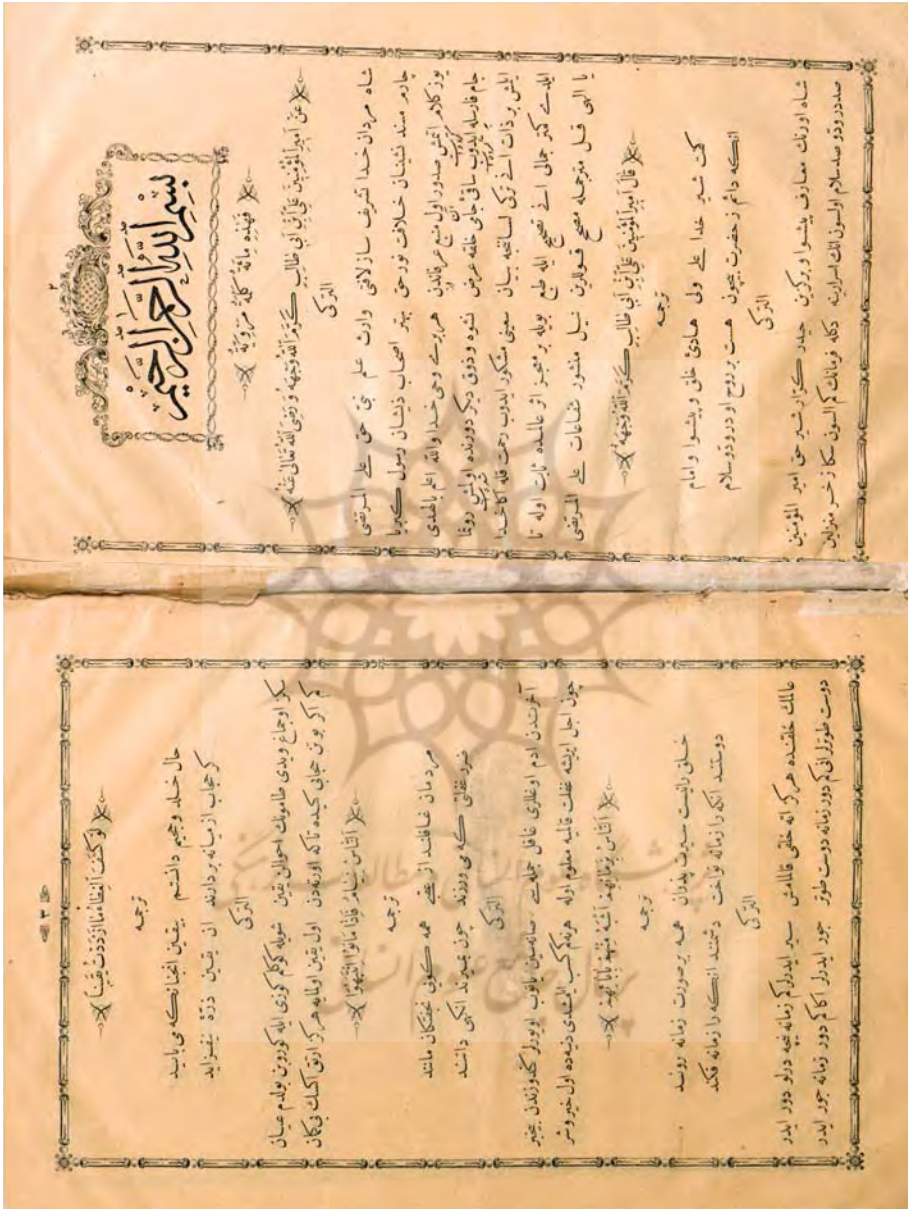 ٢
بِسْمِ اللهِ الرَّحْمٰنِ الرَّحِيمِ
فَهٰذِهِ مِائَةُ كَلِمَةٍ مَرْوِيَّةٍ
عَنْ أَمِيرِ الْمُؤْمِنِينَ عَلِيِّ بْنِ أَبِي طَالِبٍ كَرَّمَ اللهُ وَجْهَهُ وَرَضِيَ اللهُ تَعَالَى عَنْهُ
التركى
شاه مردان خدا تشريف ساز لافتى وارث علم نبى حق على المرتضى
چارم مسند نشينان خلافت نور حق بهتر اصحاب ذيشان رسول كبريا
يوز كلام ايتمش صدور اول منبع عرفاندن هر برى وحى خدا والله اعلم بالهدى
جام فارسله ايدوب ساقئ جامى خلقه عرض نشوه و ذوق ديكر دورنده اولمش رونما
ايلمش بر ذات انى تركى لسانله بيان سعينى مشكور ايدوب رحمت قله اكا خدا
ايلدى كمتر جمالى انى تصحيح ايله طبع بويله بر معجز اثر عالمده ثابت اوله تا
يا الهى قل مترجمله مصحح قوللرين نيل منشور شفاعات على المرتضى
قَالَ أَمِيرُ الْمُؤْمِنِينَ عَلِيُّ بْنُ أَبِي طَالِبٍ كَرَّمَ اللهُ وَجْهَهُ
ترجمه
گفت شير خدا على ولى هادئ خلق و پيشوا و امام
آنكه دائم ز حضرت بيچون هست بر روح او درود و سلام
التركى
شاه اورنك معارف پيشوا و ركن دين حيدر كرار شير حق امير المؤمنين
صد درود و صد سلام اولسون انك اسرارينه دكله فرمانك كم السون سكا زخر منزلين
٣
لَوْ كُشِفَ الْغِطَاءُ مَا ازْدَدْتُ يَقِينًا
ترجمه
حال خلد و جحيم دانستم بيقين آنچنانكه مى بايد
گر حجاب از ميانه بردارند آن يقين ذره نيفزايد
التركى
سكز اوچماغ ويدى طامونك احوالن يقين شويله كوكلم كوزى ايله كوروبن بولدم عيان
كم اكر بوتن حجابى كيده تا كه اورتهدن اول يقين اولمايه هركز ارتق اكسك بى كمان
اَلنَّاسُ نِيَامٌ فَإِذَا مَاتُوا انْتَبَهُوا
ترجمه
مردمان غافلند از عقبى همه گويى بخفتكان مانند
ضرر غفلتى كه مى ورزند چون بميرند آنكهى دانند
التركى
آخرتدن ادم اوغلارى غافل جمله سى صانه سين ياتوب اويورلر كندوزندن بيخبر
چون اجل ايريشه غفلت قالميه معلوم اوله هرنه كم كسب ايلمشدى دنيه ده اول خير و شر
اَلنَّاسُ بِزَمَانِهِمْ أَشْبَهُ مِنْهُمْ بِآبَائِهِمْ
ترجمه
خلق را نيست سيرت پدران همه بر صورت زمانه روند
دوستند آنكه را زمانه نواخت دشمنند آنكه را زمانه فكند
التركى
عالمك خلقنده هركز اته خلقى قالمامش سير ايدرلر كم زمانه نيجه درلو دور ايدر
دوست طوتارلر انى كم دور زمانه دوست طوتر جور ايدرلر اكا كم دور زمانه جور ايدر